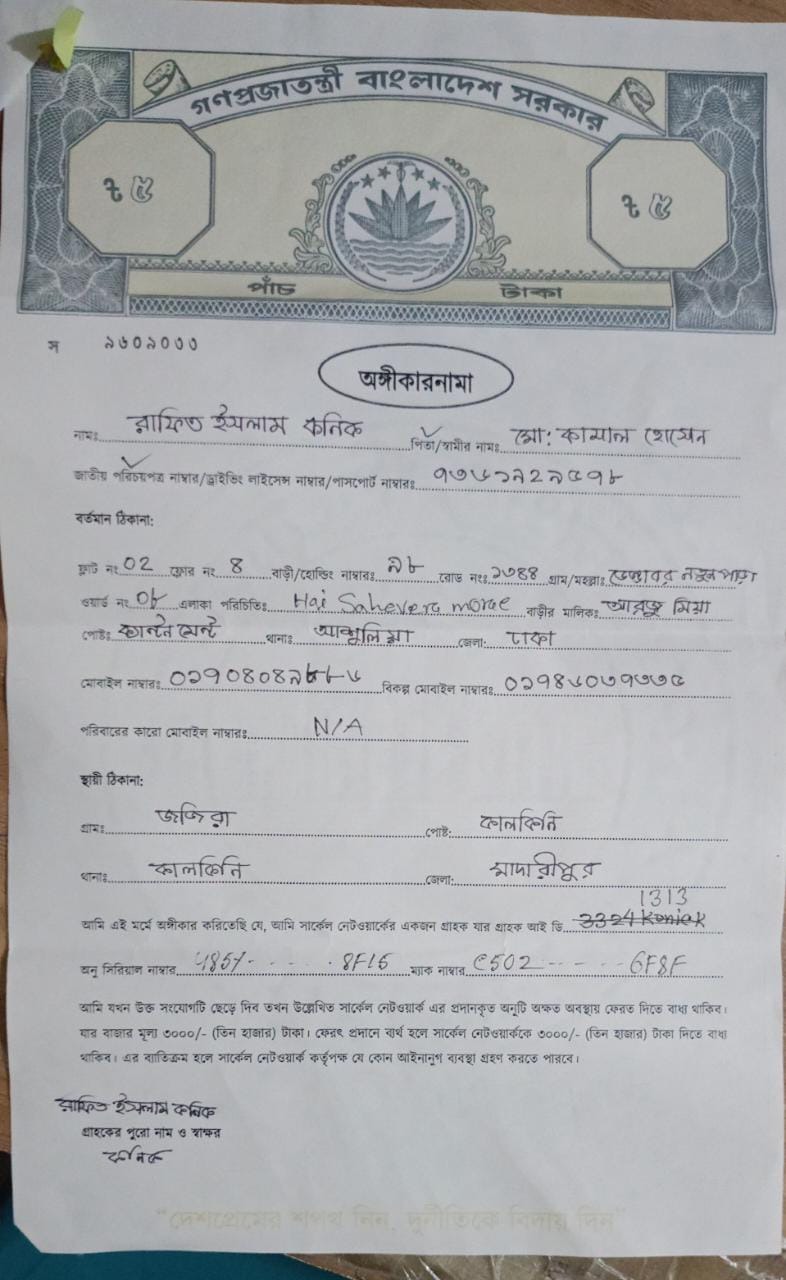 গণপ্রজাতন্ত্রী বাংলাদেশ সরকার
৳ ৫
৳ ৫
পাঁচ টাকা
স ৯৬০৯০৩৩
অঙ্গীকারনামা
নামঃ রাফিত ইসলাম কনিক পিতা/স্বামীর নামঃ মো: কামাল হোসেন
জাতীয় পরিচয়পত্র নাম্বার/ড্রাইভিং লাইসেন্স নাম্বার/পাসপোর্ট নাম্বারঃ
বর্তমান ঠিকানা:
ফ্লাট নং 02 ফ্লোর নং 8 বাড়ী/হোল্ডিং নাম্বারঃ ৯৮ রোড নংঃ গ্রাম/মহল্লাঃ নতুন পাড়া
ওয়ার্ড নং 0৮ এলাকা পরিচিতিঃ Hai Sahevera more বাড়ীর মালিকঃ মিয়া
পোষ্টঃ থানাঃ আশুলিয়া জেলা: ঢাকা
মোবাইল নাম্বারঃ বিকল্প মোবাইল নাম্বারঃ
পরিবারের কারো মোবাইল নাম্বারঃ N/A
স্থায়ী ঠিকানা:
গ্রামঃ জজিরা পোষ্ট: কালকিনি
থানাঃ কালকিনি জেলা: মাদারীপুর
1313
আমি এই মর্মে অঙ্গীকার করিতেছি যে, আমি সার্কেল নেটওয়ার্কের একজন গ্রাহক যার গ্রাহক আই ডি 3324 Koniek
অনু সিরিয়াল নাম্বার 4857 8F15 ম্যাক নাম্বার C502 6F8F
আমি যখন উক্ত সংযোগটি ছেড়ে দিব তখন উল্লেখিত সার্কেল নেটওয়ার্ক এর প্রদানকৃত অনুটি অক্ষত অবস্থায় ফেরত দিতে বাধ্য থাকিব।
যার বাজার মূল্য ৩০০০/- (তিন হাজার) টাকা। ফেরৎ প্রদানে ব্যর্থ হলে সার্কেল নেটওয়ার্ককে ৩০০০/- (তিন হাজার) টাকা দিতে বাধ্য
থাকিব। এর ব্যতিক্রম হলে সার্কেল নেটওয়ার্ক কর্তৃপক্ষ যে কোন আইনানুগ ব্যবস্থা গ্রহণ করতে পারবে।
রাফিত ইসলাম কনিক
গ্রাহকের পুরো নাম ও স্বাক্ষর
কনিক
"দেশপ্রেমের শপথ নিন, দুর্নীতিকে বিদায় দিন"